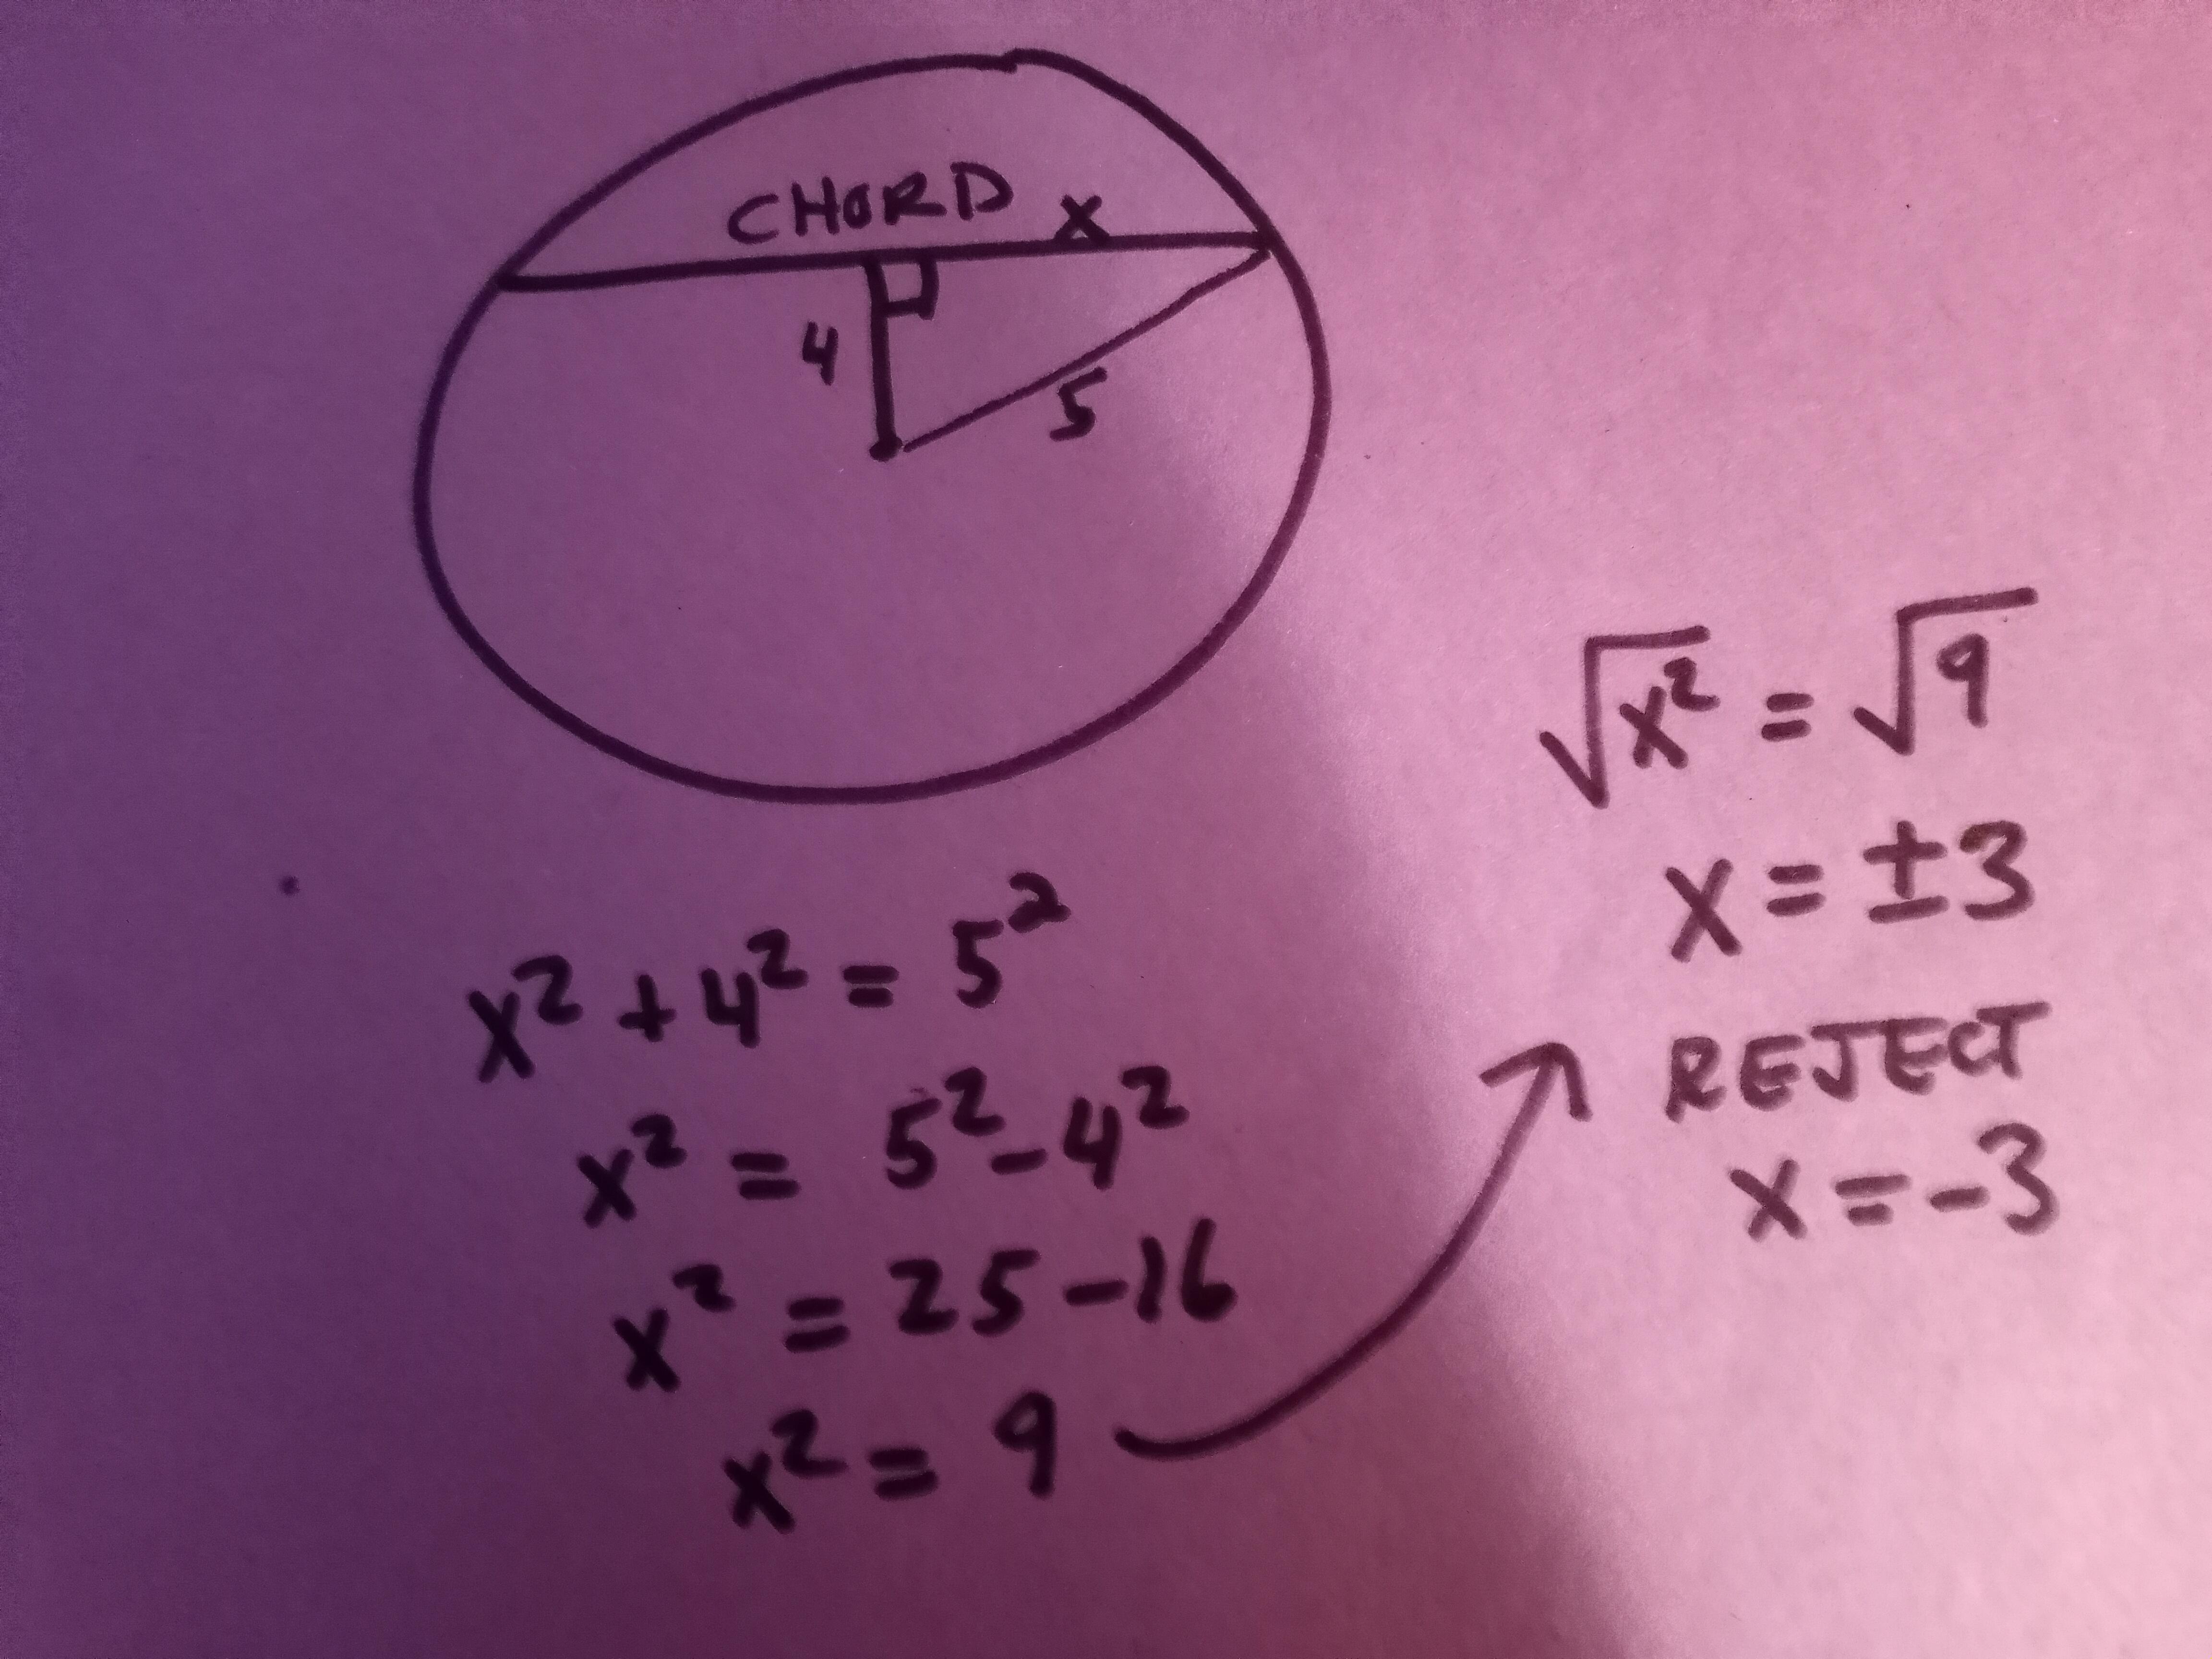 CHORD x
4
5
x² + 4² = 5²
x² = 5² - 4²
x² = 25 - 16
x² = 9
√x² = √9
x = ±3
REJECT
x = -3